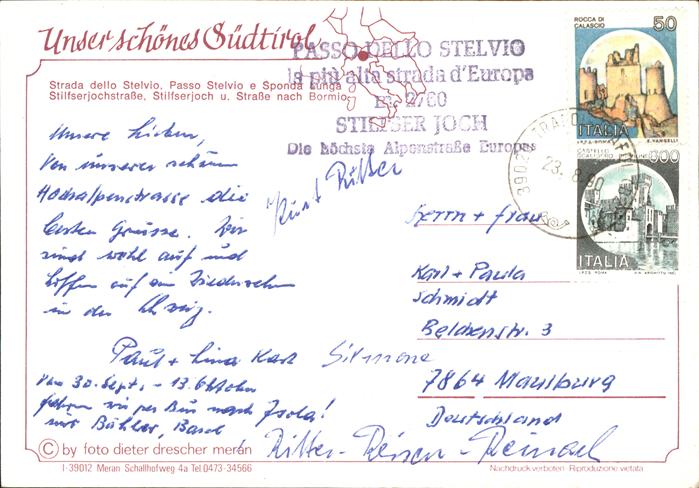 Unser schönes Südtirol
Strada dello Stelvio, Passo Stelvio e Sponda lunga
Stilfserjochstraße, Stilfserjoch u. Straße nach Bormio
PASSO DELLO STELVIO
la più alta strada d'Europa
m. 2760
STILFSER JOCH
Die höchste Alpenstraße Europas
ROCCA DI
CALASCIO
50
ITALIA
I.P.Z.S. - ROMA E. VANGELLI
CASTELLO
SCALIGERO
ITALIA
I.P.Z.S. ROMA
39020
23. 8. 80
Unsere Lieben,
Von unserer schönen
Hochalpenstrasse die
besten Grüsse. Wir
sind wohl auf und
hoffen auf ein Wiedersehn
in der
Paul + Lina Karl Simone
Vom 30. Sept. - 13. Oktober
fahren wir per Bus nach Isola!
mit Bühler, Basel
Kurt Ritter
Herrn + Frau
Karl + Paula
Schmidt
Belchenstr. 3
7864 Maulburg
Deutschland
Ritter-Reisen-Reinach
© by foto dieter drescher meran
I-39012 Meran Schallhofweg 4a Tel 0473-34566
Nachdruck verboten Riproduzione vietata